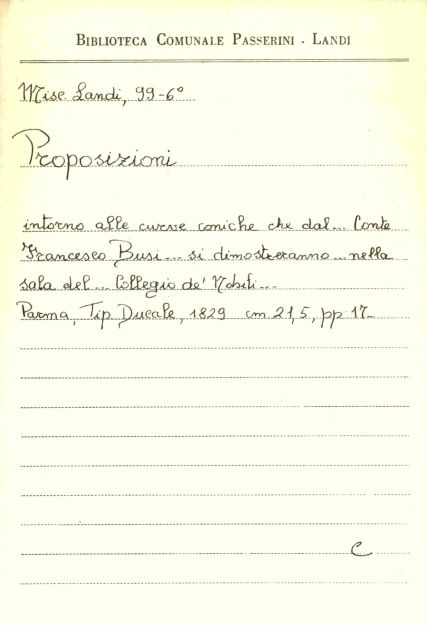 BIBLIOTECA COMUNALE PASSERINI - LANDI
Misc. Landi, 99-6°
Proposizioni
intorno alle curve coniche che dal... Conte
Francesco Busi... si dimostreranno... nella
sala del... Collegio de' Nobili...
Parma, Tip. Ducale, 1829 cm. 21,5, pp 17.
C